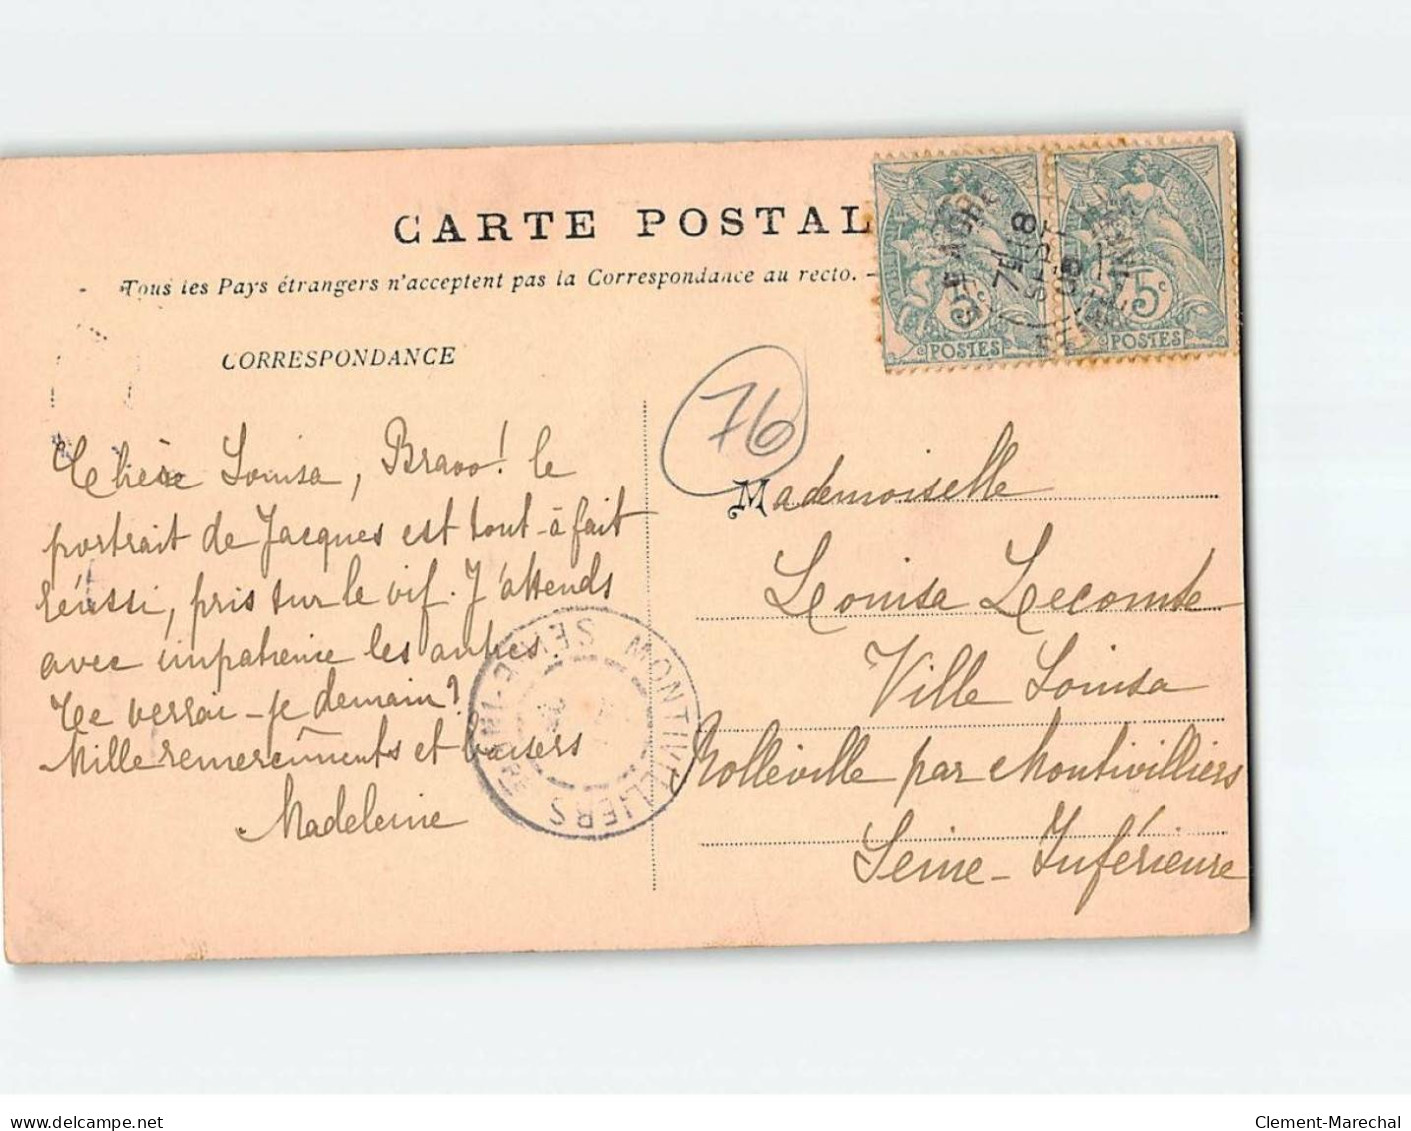 CARTE POSTAL
Tous les Pays étrangers n'acceptent pas la Correspondance au recto.
CORRESPONDANCE
5c
POSTES
5c
POSTES
76
Chère Louisa, Bravo! le
portrait de Jacques est tout-à fait
réussi, pris sur le vif. J'attends
avec impatience les autres
Te verrai-je demain?
Mille remerciments et baisers
Madeleine
Mademoiselle
Louisa Lecomte
Ville Louisa
Rolleville par Montivilliers
Seine-Inférieure
MONTIVILLIERS
SEINE-INFRE
delcampe.net
Clement-Marechal